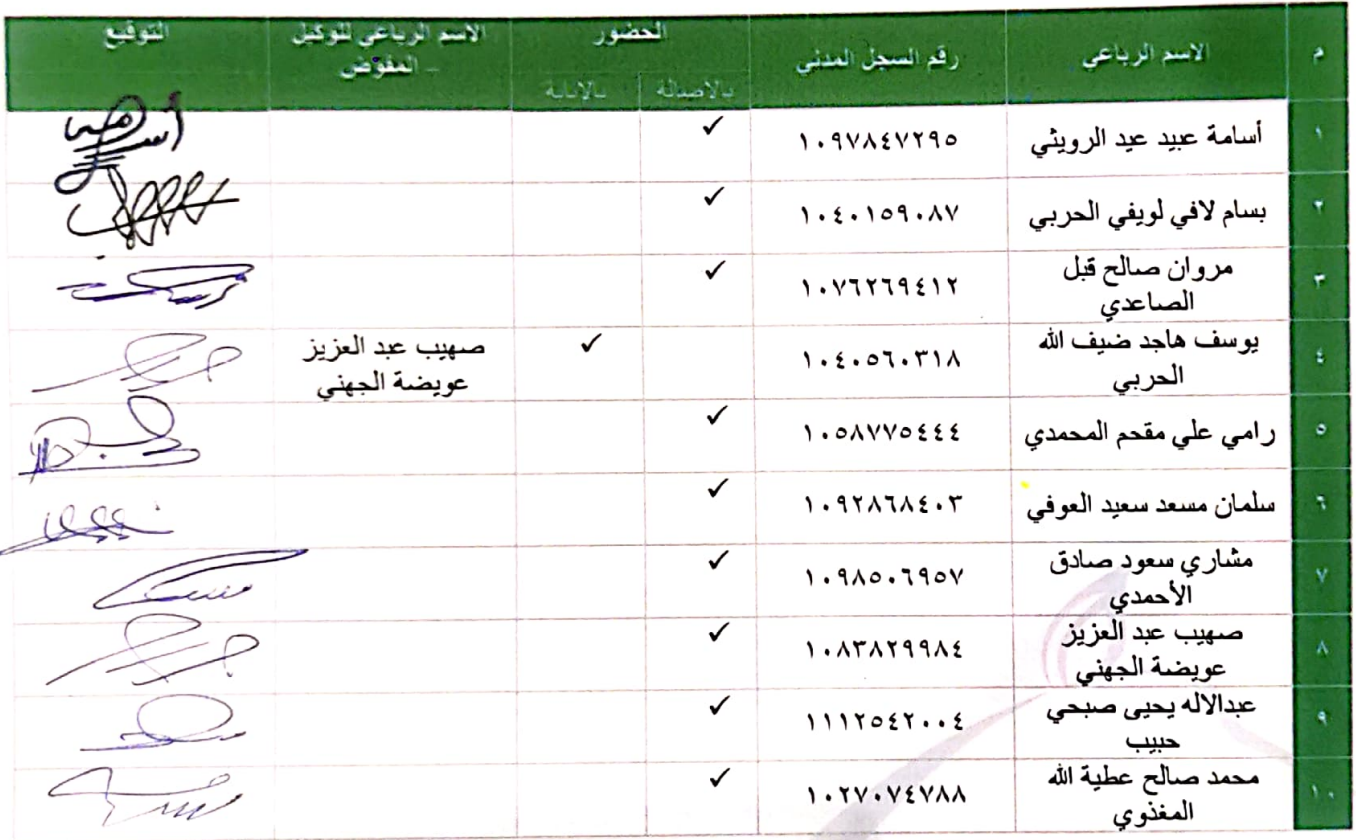 م الاسم الرباعي رقم السجل المدني الحضور الاسم الرباعي للوكيل التوقيع
بالاصالة بالانابة المفوض
١ أسامة عبيد عيد الرويثي ١٠٩٧٨٤٧٢٩٥ ✓
٢ بسام لافي لويفي الحربي ١٠٤٠١٥٩٠٨٧ ✓
٣ مروان صالح قبل
الصاعدي ١٠٧٦٢٦٩٤١٢ ✓
٤ يوسف هاجد ضيف الله
الحربي ١٠٤٠٥٦٠٣١٨ ✓ صهيب عبد العزيز
عويضة الجهني
٥ رامي علي مقحم المحمدي ١٠٥٨٧٧٥٤٤٤ ✓
٦ سلمان مسعد سعيد العوفي ١٠٩٢٨٦٨٤٠٣ ✓
٧ مشاري سعود صادق
الأحمدي ١٠٩٨٥٠٦٩٥٧ ✓
٨ صهيب عبد العزيز
عويضة الجهني ١٠٨٣٨٢٩٩٨٤ ✓
٩ عبدالاله يحيى صبحي
حبيب ١١١٢٥٤٢٠٠٤ ✓
١٠ محمد صالح عطية الله
المغذوي ١٠٢٧٠٧٤٧٨٨ ✓